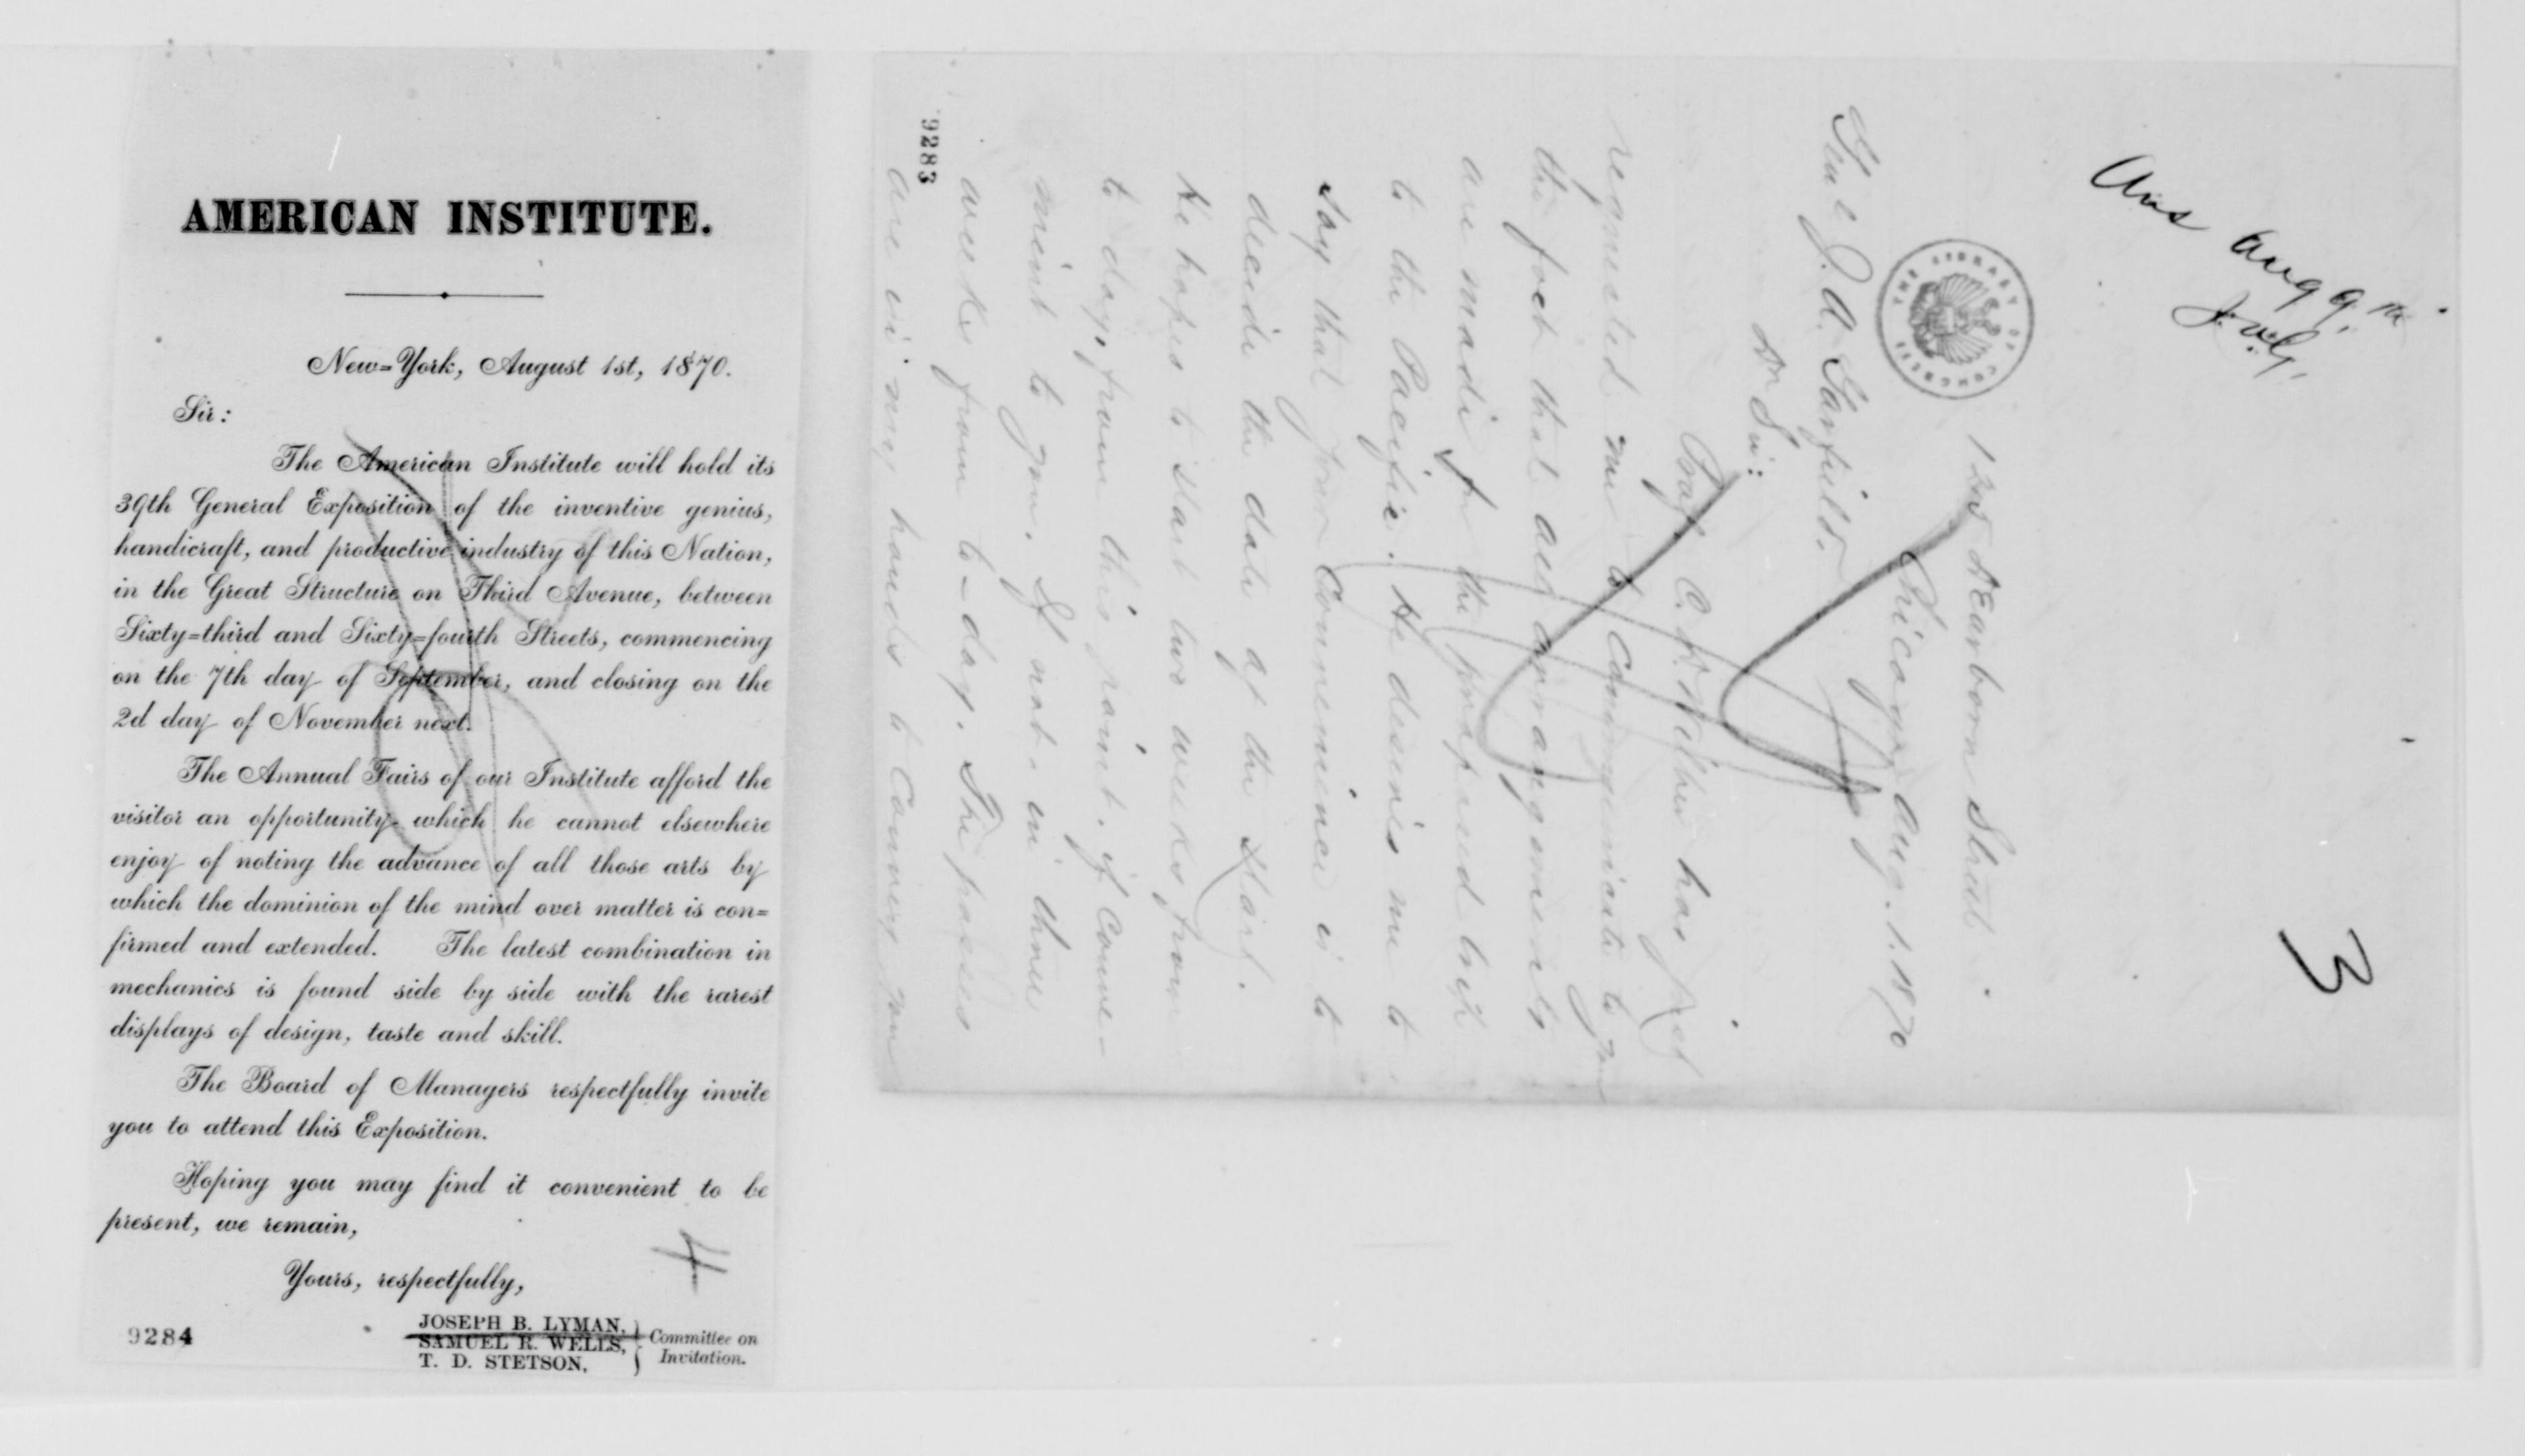 AMERICAN INSTITUTE.
New-York, August 1st, 1870.
Sir:
The American Institute will hold its
39th General Exposition of the inventive genius,
handicraft, and productive industry of this Nation,
in the Great Structure on Third Avenue, between
Sixty-third and Sixty-fourth Streets, commencing
on the 7th day of September, and closing on the
2d day of November next.
The Annual Fairs of our Institute afford the
visitor an opportunity which he cannot elsewhere
enjoy of noting the advance of all those arts by
which the dominion of the mind over matter is con-
firmed and extended. The latest combination in
mechanics is found side by side with the rarest
displays of design, taste and skill.
The Board of Managers respectfully invite
you to attend this Exposition.
Hoping you may find it convenient to be
present, we remain,
Yours, respectfully,
4
JOSEPH B. LYMAN,
SAMUEL R. WELLS,
T. D. STETSON,
Committee on
Invitation.
9284
Ans Aug 9th
3
THE LIBRARY OF CONGRESS
125 Dearborn Street
Chicago, Aug. 1. 1870
J. A. Garfield.
Dr Sir:
Prof. C. has just
requested me to communicate to you
the fact that all arrangements
are made for the proposed trip
to the Pacific. He desires me to
say that your convenience is to
decide the date of the start.
He hopes to start two weeks from
to day, from this point, if conve-
nient to you. If not, in three
weeks from to-day. The passes
are in my hands to Council
9283